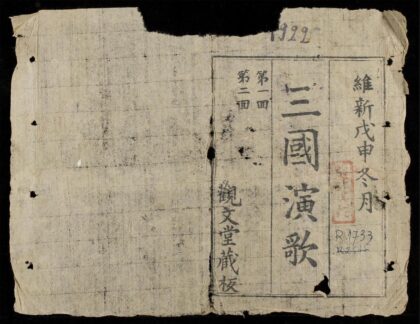 1922
維新戊申冬月
三國演歌
第一回
第二回
觀文堂藏板
R.1733